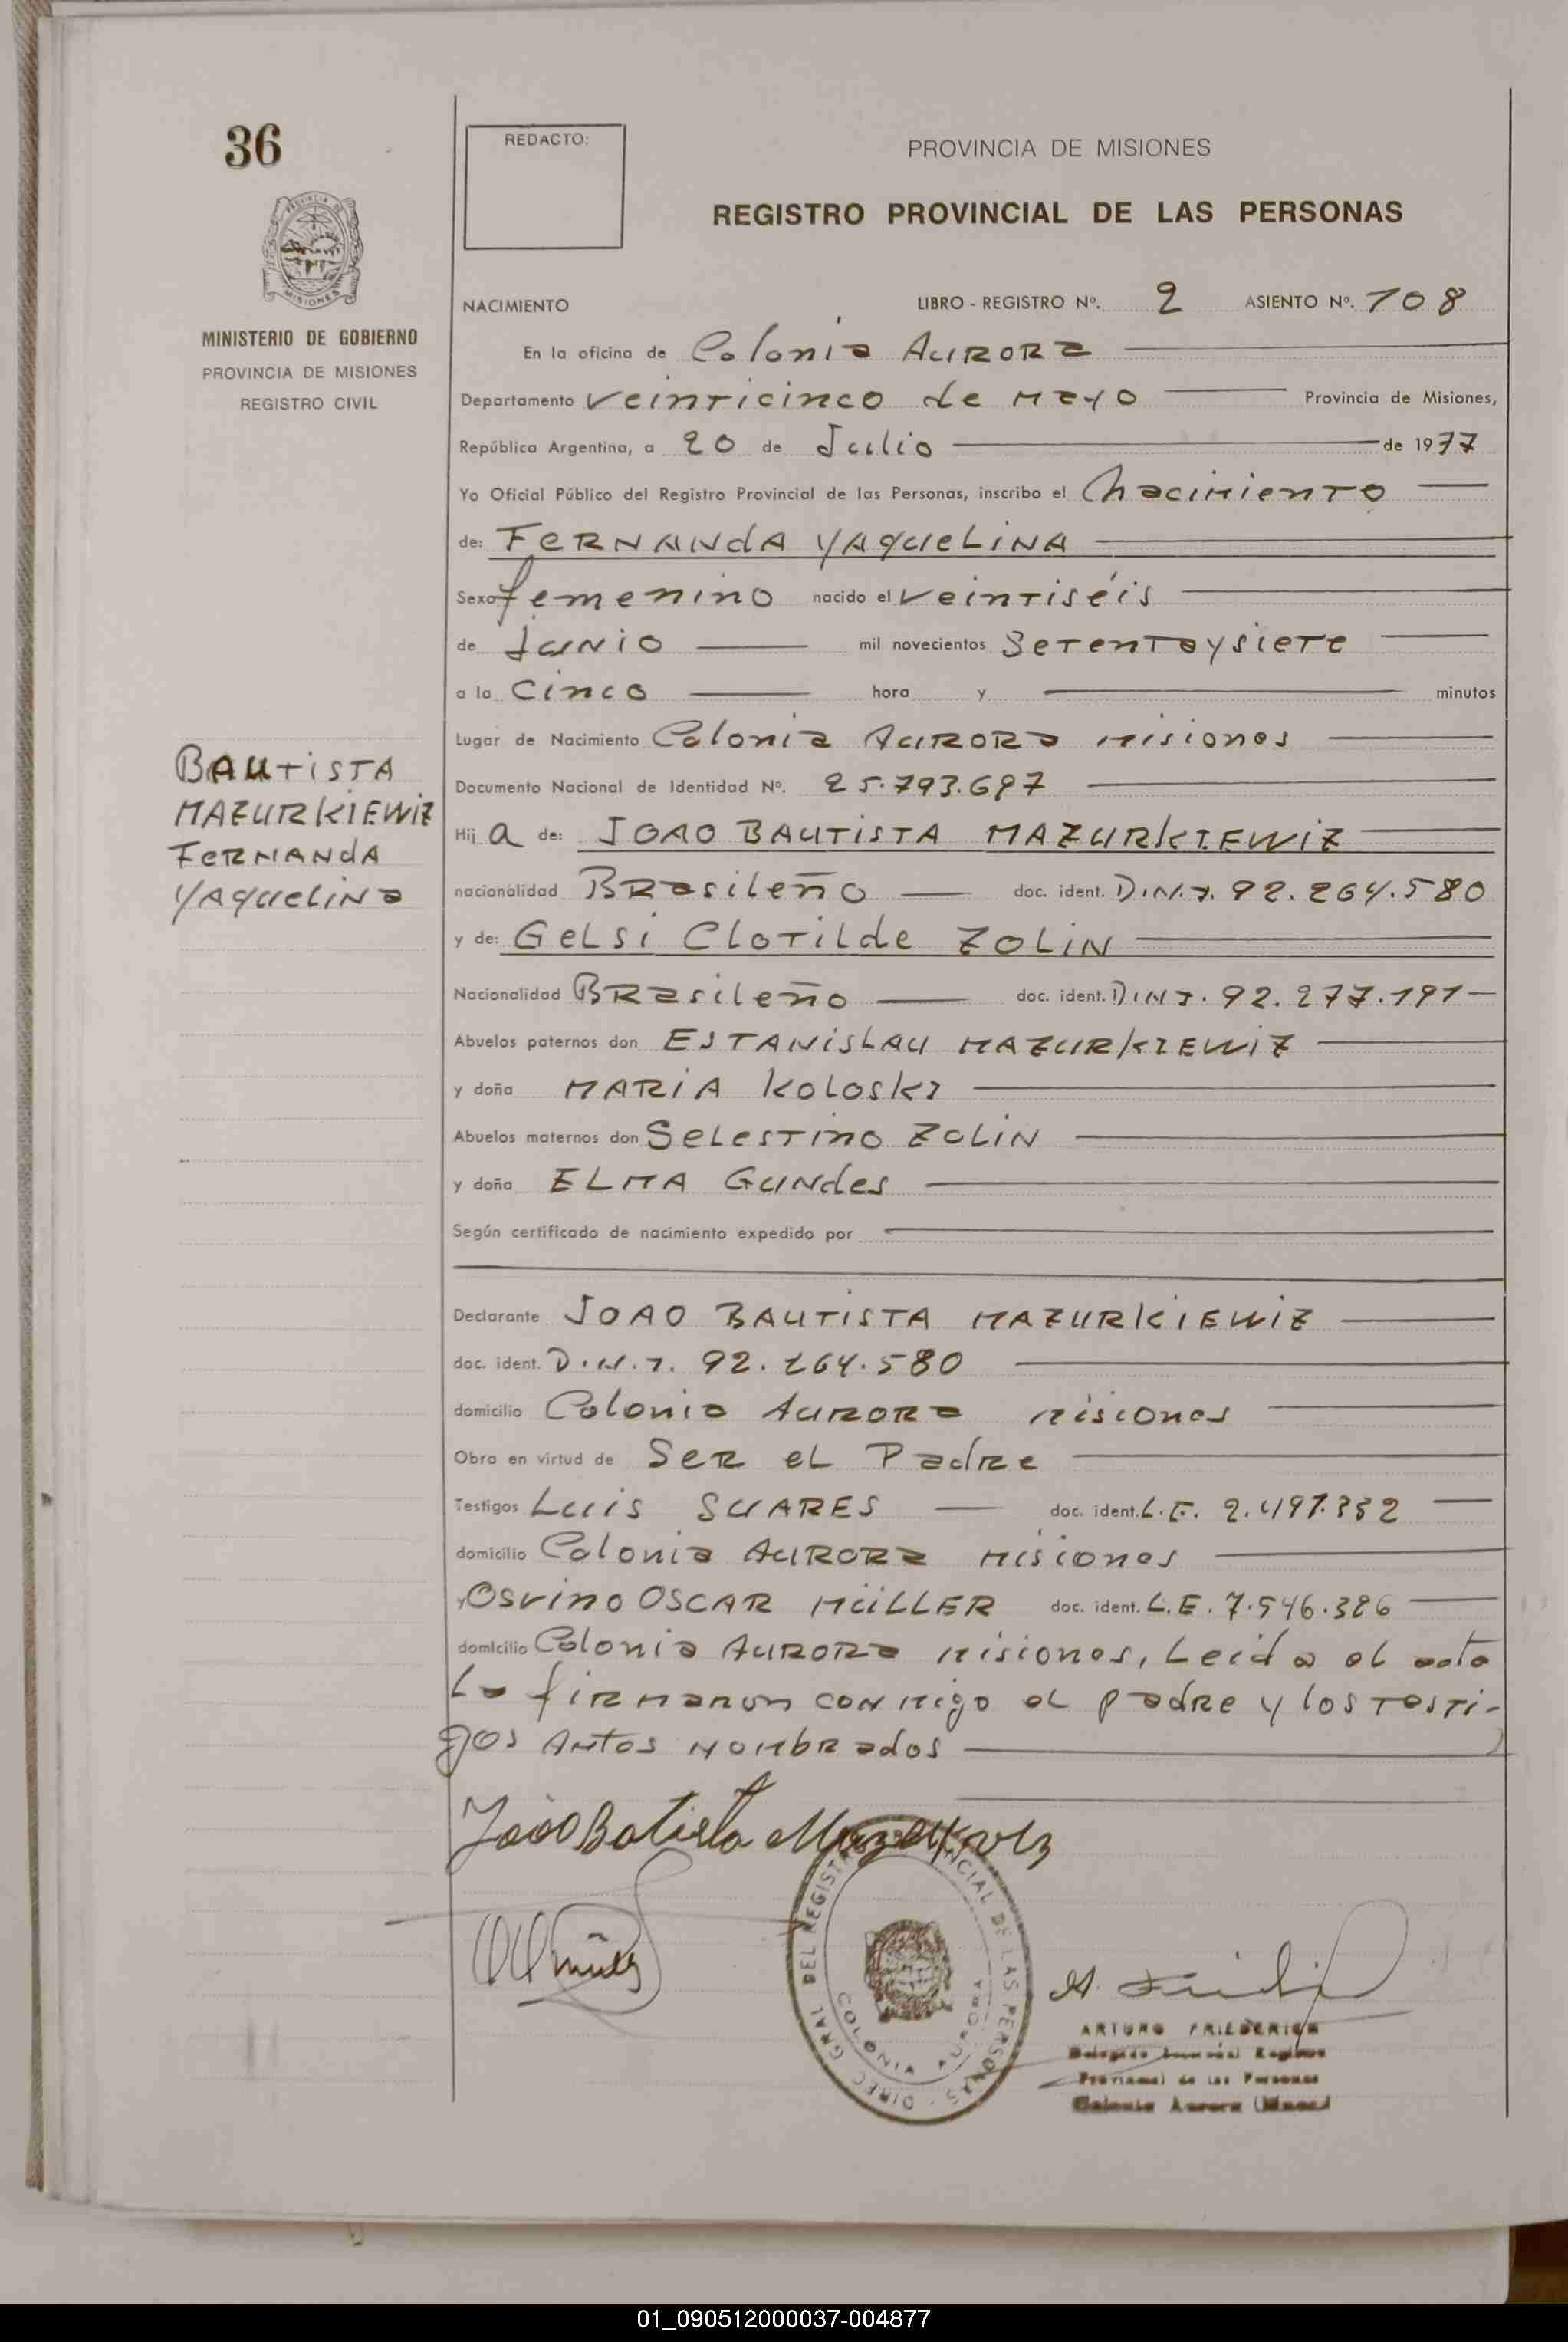 36
REDACTO:
PROVINCIA DE MISIONES
REGISTRO PROVINCIAL DE LAS PERSONAS
MINISTERIO DE GOBIERNO
PROVINCIA DE MISIONES
REGISTRO CIVIL
NACIMIENTO LIBRO - REGISTRO Nº. 2 ASIENTO Nº. 108
En la oficina de Colonia AURORA
Departamento veinticinco de mayo Provincia de Misiones,
República Argentina, a 20 de Julio de 1977
Yo Oficial Público del Registro Provincial de las Personas, inscribo el nacimiento
de: FERNANDA YAQUELINA
Sexo femenino nacido el veintiséis
de junio mil novecientos Setentaysiete
a la cinco hora y minutos
Lugar de Nacimiento Colonia AURORA misiones
Documento Nacional de Identidad Nº. 25.793.697
BAUTISTA
MAZURKIEWIZ
FERNANDA
YAQUELINA
Hij a de: JOAO BAUTISTA MAZURKIEWIZ
nacionalidad BRasileño doc. ident. D.N.I. 92.264.580
y de: GELSI CLOTILDE ZOLIN
Nacionalidad BRasileño doc. ident. D.N.I. 92.277.191
Abuelos paternos don ESTANISLAU MAZURKIEWIZ
y doña MARIA KOLOSKI
Abuelos maternos don SELESTINO ZOLIN
y doña ELMA GUNDES
Según certificado de nacimiento expedido por
Declarante JOAO BAUTISTA MAZURKIEWIZ
doc. ident. D.N.I. 92.264.580
domicilio Colonia AURORA misiones
Obra en virtud de SER el Padre
Testigos LUIS SUARES doc. ident. L.E. 2.497.332
domicilio Colonia AURORA misiones
y OSVINO OSCAR MÜLLER doc. ident. L.E. 7.546.386
domicilio Colonia AURORA misiones, Leida el acta
La firmaron conmigo el padre y los testi-
gos antes nombrados
João Batista
DIREC. GRAL. DEL REGISTRO PROVINCIAL DE LAS PERSONAS
COLONIA AURORA
ARTURO FRIEDERICH
Provincial de las Personas
Colonia Aurora (Mnes)
01_090512000037-004877